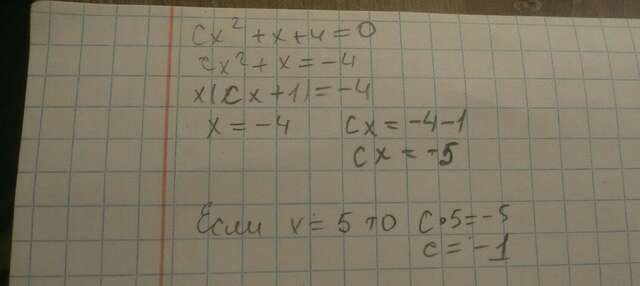 cx² + x + 4 = 0
cx² + x = -4
x(cx + 1) = -4
x = -4 cx = -4 - 1
cx = -5
Если x = 5 то c•5 = -5
c = -1